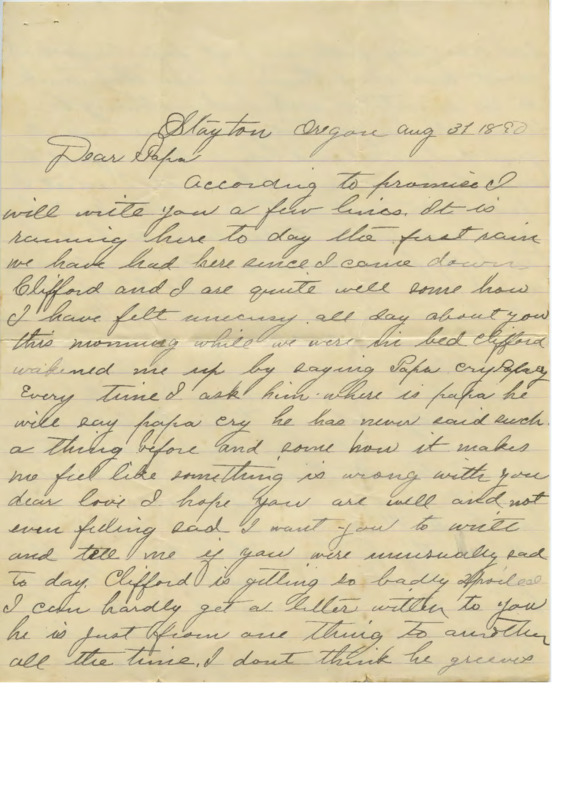 Stayton Oregon Aug 31 1890
Dear Papa
According to promise I
will write you a few lines. It is
raining here to day the first rain
we have had here since I came down
Clifford and I are quite well some how
I have felt uneasy all day about you
this morning while we were in bed Clifford
wakened me up by saying Papa cry Papa cry
Every time I ask him where is papa he
will say papa cry he has never said such
a thing before and some how it makes
me feel like something is wrong with you
dear love I hope you are well and not
even feeling sad I want you to write
and tell me if you were unusually sad
to day. Clifford is getting so badly spoiled
I can hardly get a letter written to you
he is just from one thing to another
all the time. I dont think he greeves